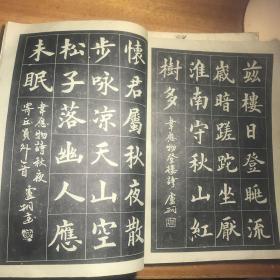 茲樓日登眺流
嵗暗蹉跎坐厭
淮南守秋山紅
樹多
韋應物登樓詩 盧詞
懷君屬秋夜散
步咏凉天山空
松子落幽人應
未眠
韋應物詩秋夜
寄丘員外一首